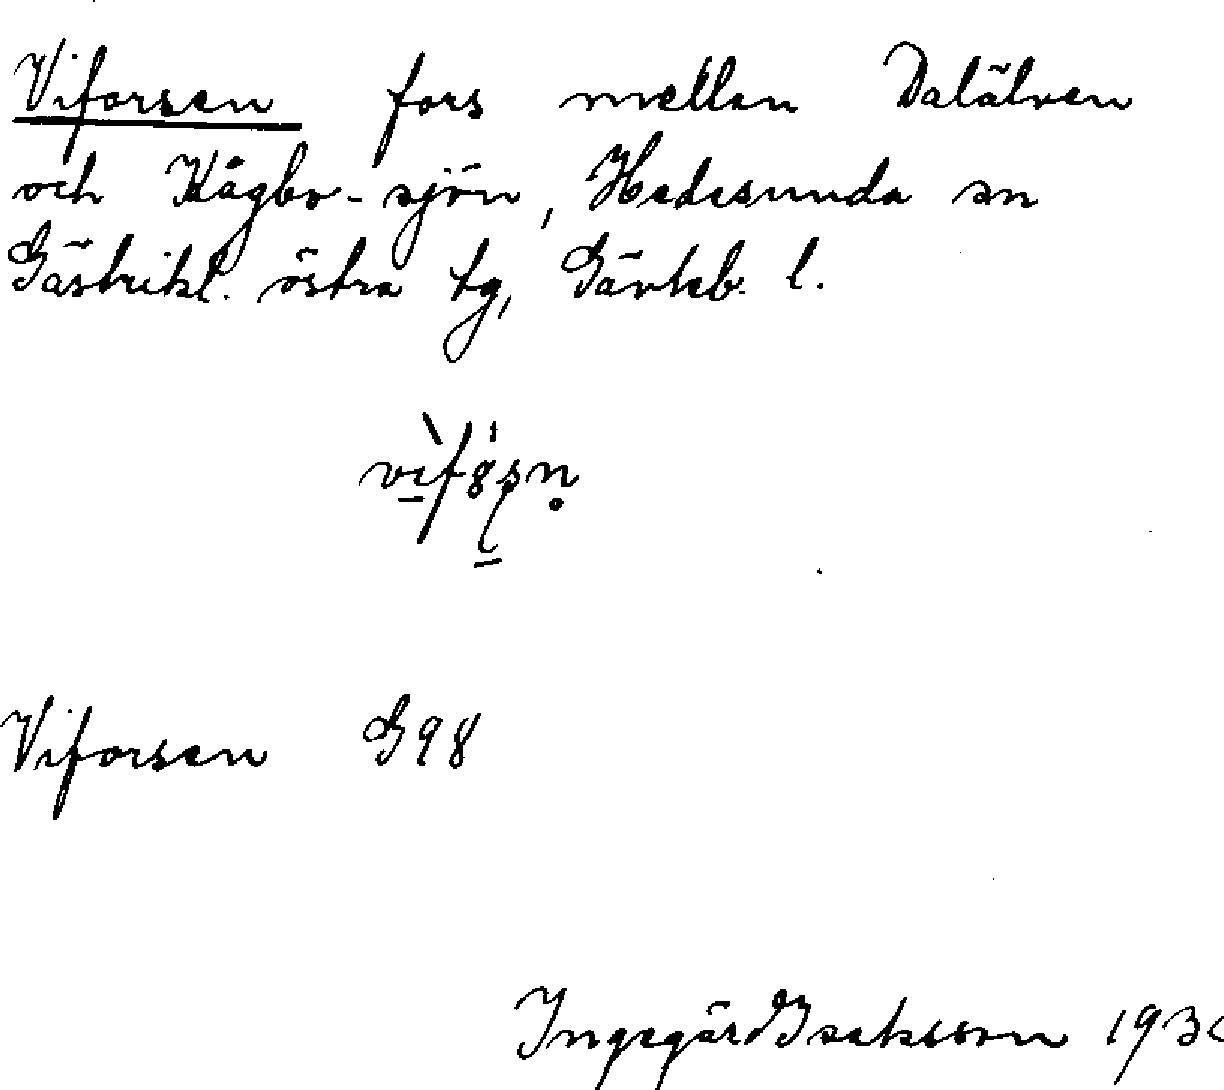 Viforsen fors mellan Dalälven
och Kågbo-sjön, Hedesunda sn
Gästrikl. östra tg, Gävleb. l.
Viforsen G98
Ingegärd Isaksson